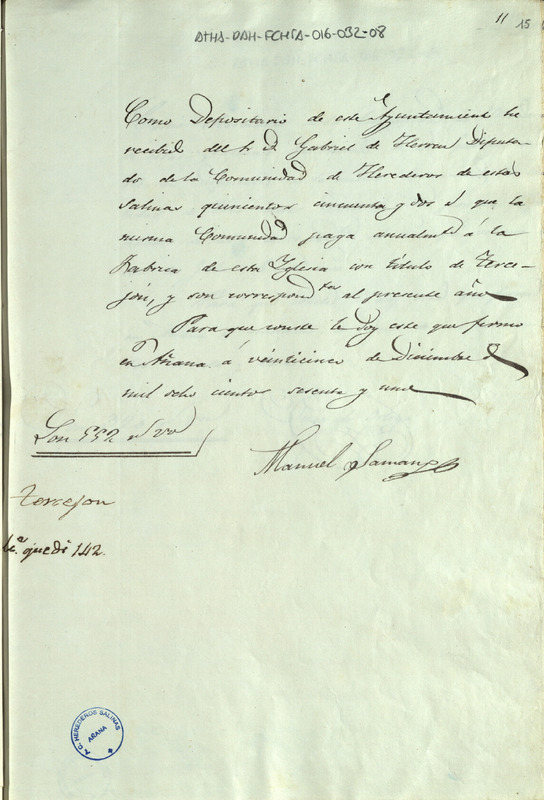 11 15
ATHA-DAH-FCHSA-016-032-08
Como Depositario de este Ayuntamiento he
recibido del Sr. D. Gabriel de Herran Diputa-
do de la Comunidad de Herederos de estas
Salinas quinientos cincuenta y dos rs que la
misma Comunidad paga anualmte á la
Fabrica de esta Yglesia con título de Terce-
jón, y son correspondtes al presente año
Para que conste le doy este que firmo
en Añana á veinticinco de Diciembre de
mil ocho cientos sesenta y uno
Son 552 rs von
Manuel Samang
tercejon
quedé 142.
A.C. HEREDEROS SALINAS
AÑANA